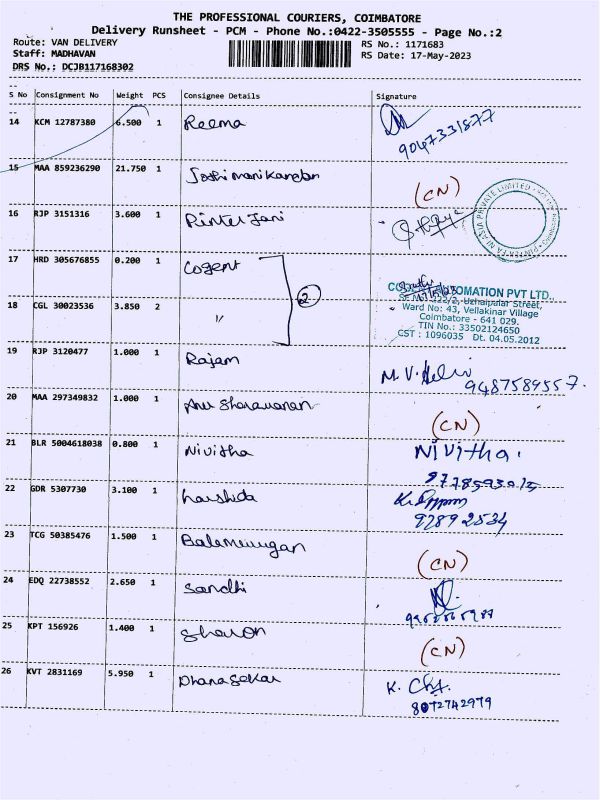 THE PROFESSIONAL COURIERS, COIMBATORE
Delivery Runsheet - PCM - Phone No.:0422-3505555 - Page No.:2
Route: VAN DELIVERY RS No.: 1171683
Staff: MADHAVAN RS Date: 17-May-2023
DRS No.: DCJB117168302
S No Consignment No Weight PCS Consignee Details Signature
14 KCM 12787380 6.500 1 Reema
9047331877
15 MAA 859236290 21.750 1 Joshi manikandan (CN)
16 RJP 3151316 3.600 1 Pinter Jani
17 HRD 305676855 0.200 1 Cogent
2
18 CGL 30023536 3.850 2 "
AUTOMATION PVT LTD.,
Uzhaipalar Street,
Ward No: 43, Vellakinar Village
Coimbatore - 641 029.
TIN No.: 33502124650
CST : 1096035 Dt. 04.05.2012
19 RJP 3120477 1.000 1 Rajam M.V.
9487589557.
20 MAA 297349832 1.000 1 Anu Sharavanan (CN)
21 BLR 5004618038 0.800 1 Nivitha Nivitha.
22 GDR 5307730 3.100 1 harshida
23 TCG 50385476 1.500 1 Balamurugan (CN)
24 EDQ 22738552 2.650 1 Sandhi
25 KPT 156926 1.400 1 Sharon (CN)
26 KVT 2831169 5.950 1 Dhanasekar K.
8072742979